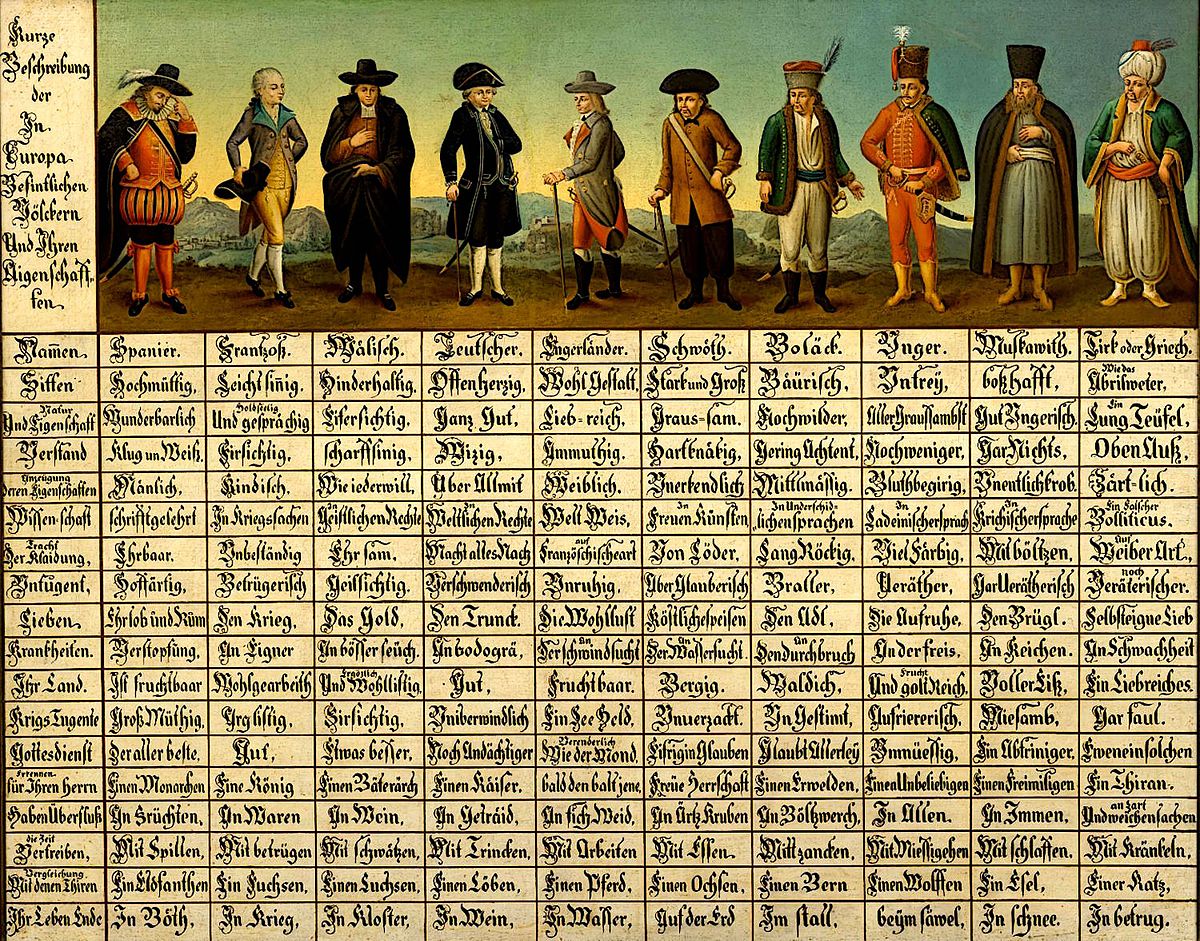 Kurze
Beschreibung
der
In
Europa
Befintlichen
Völckern
Und Ihren
Aigenschaff-
ten
Namen. Spanier. Frantzoß. Wälisch. Teutscher. Engerländer. Schwöth. Boläck. Vnger. Muskawith. Tirk oder Griech.
Sitten Hochmüttig, Leicht sinig, Hinderhaltig, Offenherzig, Wohl Gestalt, Stark und Groß Bäurisch, Vntrey, boßhafft, Wie das Abrilweter,
Natur Und Eigenschaft Wunderbarlich Holdseelig Und gesprächig Eifersichtig, Ganz Gut, Lieb-reich, Graus-sam. Hochwilder, Aller Graussambst Gut Vngerisch, Ein Lung Teüfel,
Verstand Klug un Weiß, Firsichtig, scharffsinig, Wizig, Ammuthig, Hartknäbig, Gering Achtent, Nochweniger, Gar Nichts, Oben Auß,
Anzeugung deren Eigenschaften Mänlich, Kindisch, Wie iederwill, Über Allmit Weiblich, Vnerkendlich Mittlmässig, Bluthbegirig, Vnentlichkrob, Zärt-lich.
Wissen-schaft schrifftgelehrt In Kriegssachen In Geistlichen Rechte In Weltlichen Rechte Welt Weis, In Freuen Künsten In Underschid-lichen sprachen In Ladeinischersprach In Krichischersprache Ein Falscher Bolliticus.
Tracht Der Klaidung, Ehrbaar. Vnbeständig Ehrsam. Macht alles Nach auf Französchischeart Von Löder. Lang Röckig, Viel Färbig, Mit böltzen, Auf Weiber Art,
Vntugent, Hoffärtig, Betrügerisch Geillsichtig, Verschwenderisch Vnruhig, Über Glauberisch Braller, Veräther, Gar Verätherisch noch Veräterischer.
Lieben. Ehrlob und Rüm Den Krieg, Das Gold, Den Trunck. Die Wohllust Köstlichespeisen Den Adl, Die Aufruhe, Den Brügl. Selbsteigne Lieb
Krankheiten. Verstopfung, An Eigner An bösser seüch, An bodogrä, An Der schwindsucht An Der Wassersucht. An Den durchbruch An der freis, An Keichen. An Schwachheit
Ihr Land. Ist fruchtbaar Wohlgearbeith Ergötzlich Und Wohllistig, Gut, Fruchtbaar. Bergig. Waldich, Frucht Und golt Reich, Voller Eiß, Ein Liebreiches
Krigs Tugente Groß Müthig, Arg listig, Firsichtig, Vniberwindlich Ein See Held, Vnuerzackt. Vn Gestimt, Aufriererisch, Miesamb, Gar faul.
Gottesdienst Der aller beste. Gut, Etwas besser, Noch Andächtiger Verenderlich Wie der Mond. Eifrig in Glauben Glaubt Allerley Vnmüessig, Ein Abtriniger, Eweneinsolchen
Erkennen für Ihren Herrn Einen Monarchen Eine König Einen Bäterärch Einen Kaiser, bald den balt jene, Freüe Herrschaft Einen Erwelden, Einen Unbeliebigen Einen Freimiligen Ein Thiran.
Haben Überfluß An Früchten, An Waren An Wein, An Geträid, An fich Weid, An Ärtz Kruben An Böltzwerch, In Allen. An Immen, an zart Und weichen sachen
die Zeit Vertreiben, Mit Spillen, Mit betrügen Mit schwätzen, Mit Trincken, Mit Arbeiten Mit Essen. Mitt zancken, Mit Miessigehen Mit schlaffen. Mit Kränkeln,
Vergleichung Mit denen Thiren Ein Elofanthen Ein Fuchsen, Einen Luchsen, Einen Löben, Einen Pferd, Einen Ochsen, Einen Bern Einen Wolffen Ein Esel, Einer Katz,
Ihr Leben Ende In Böth, In Krieg, In Kloster, In Wein, In Wasser, Auf der Erd Im stall, beÿm säwel, In schnee. In betrug.